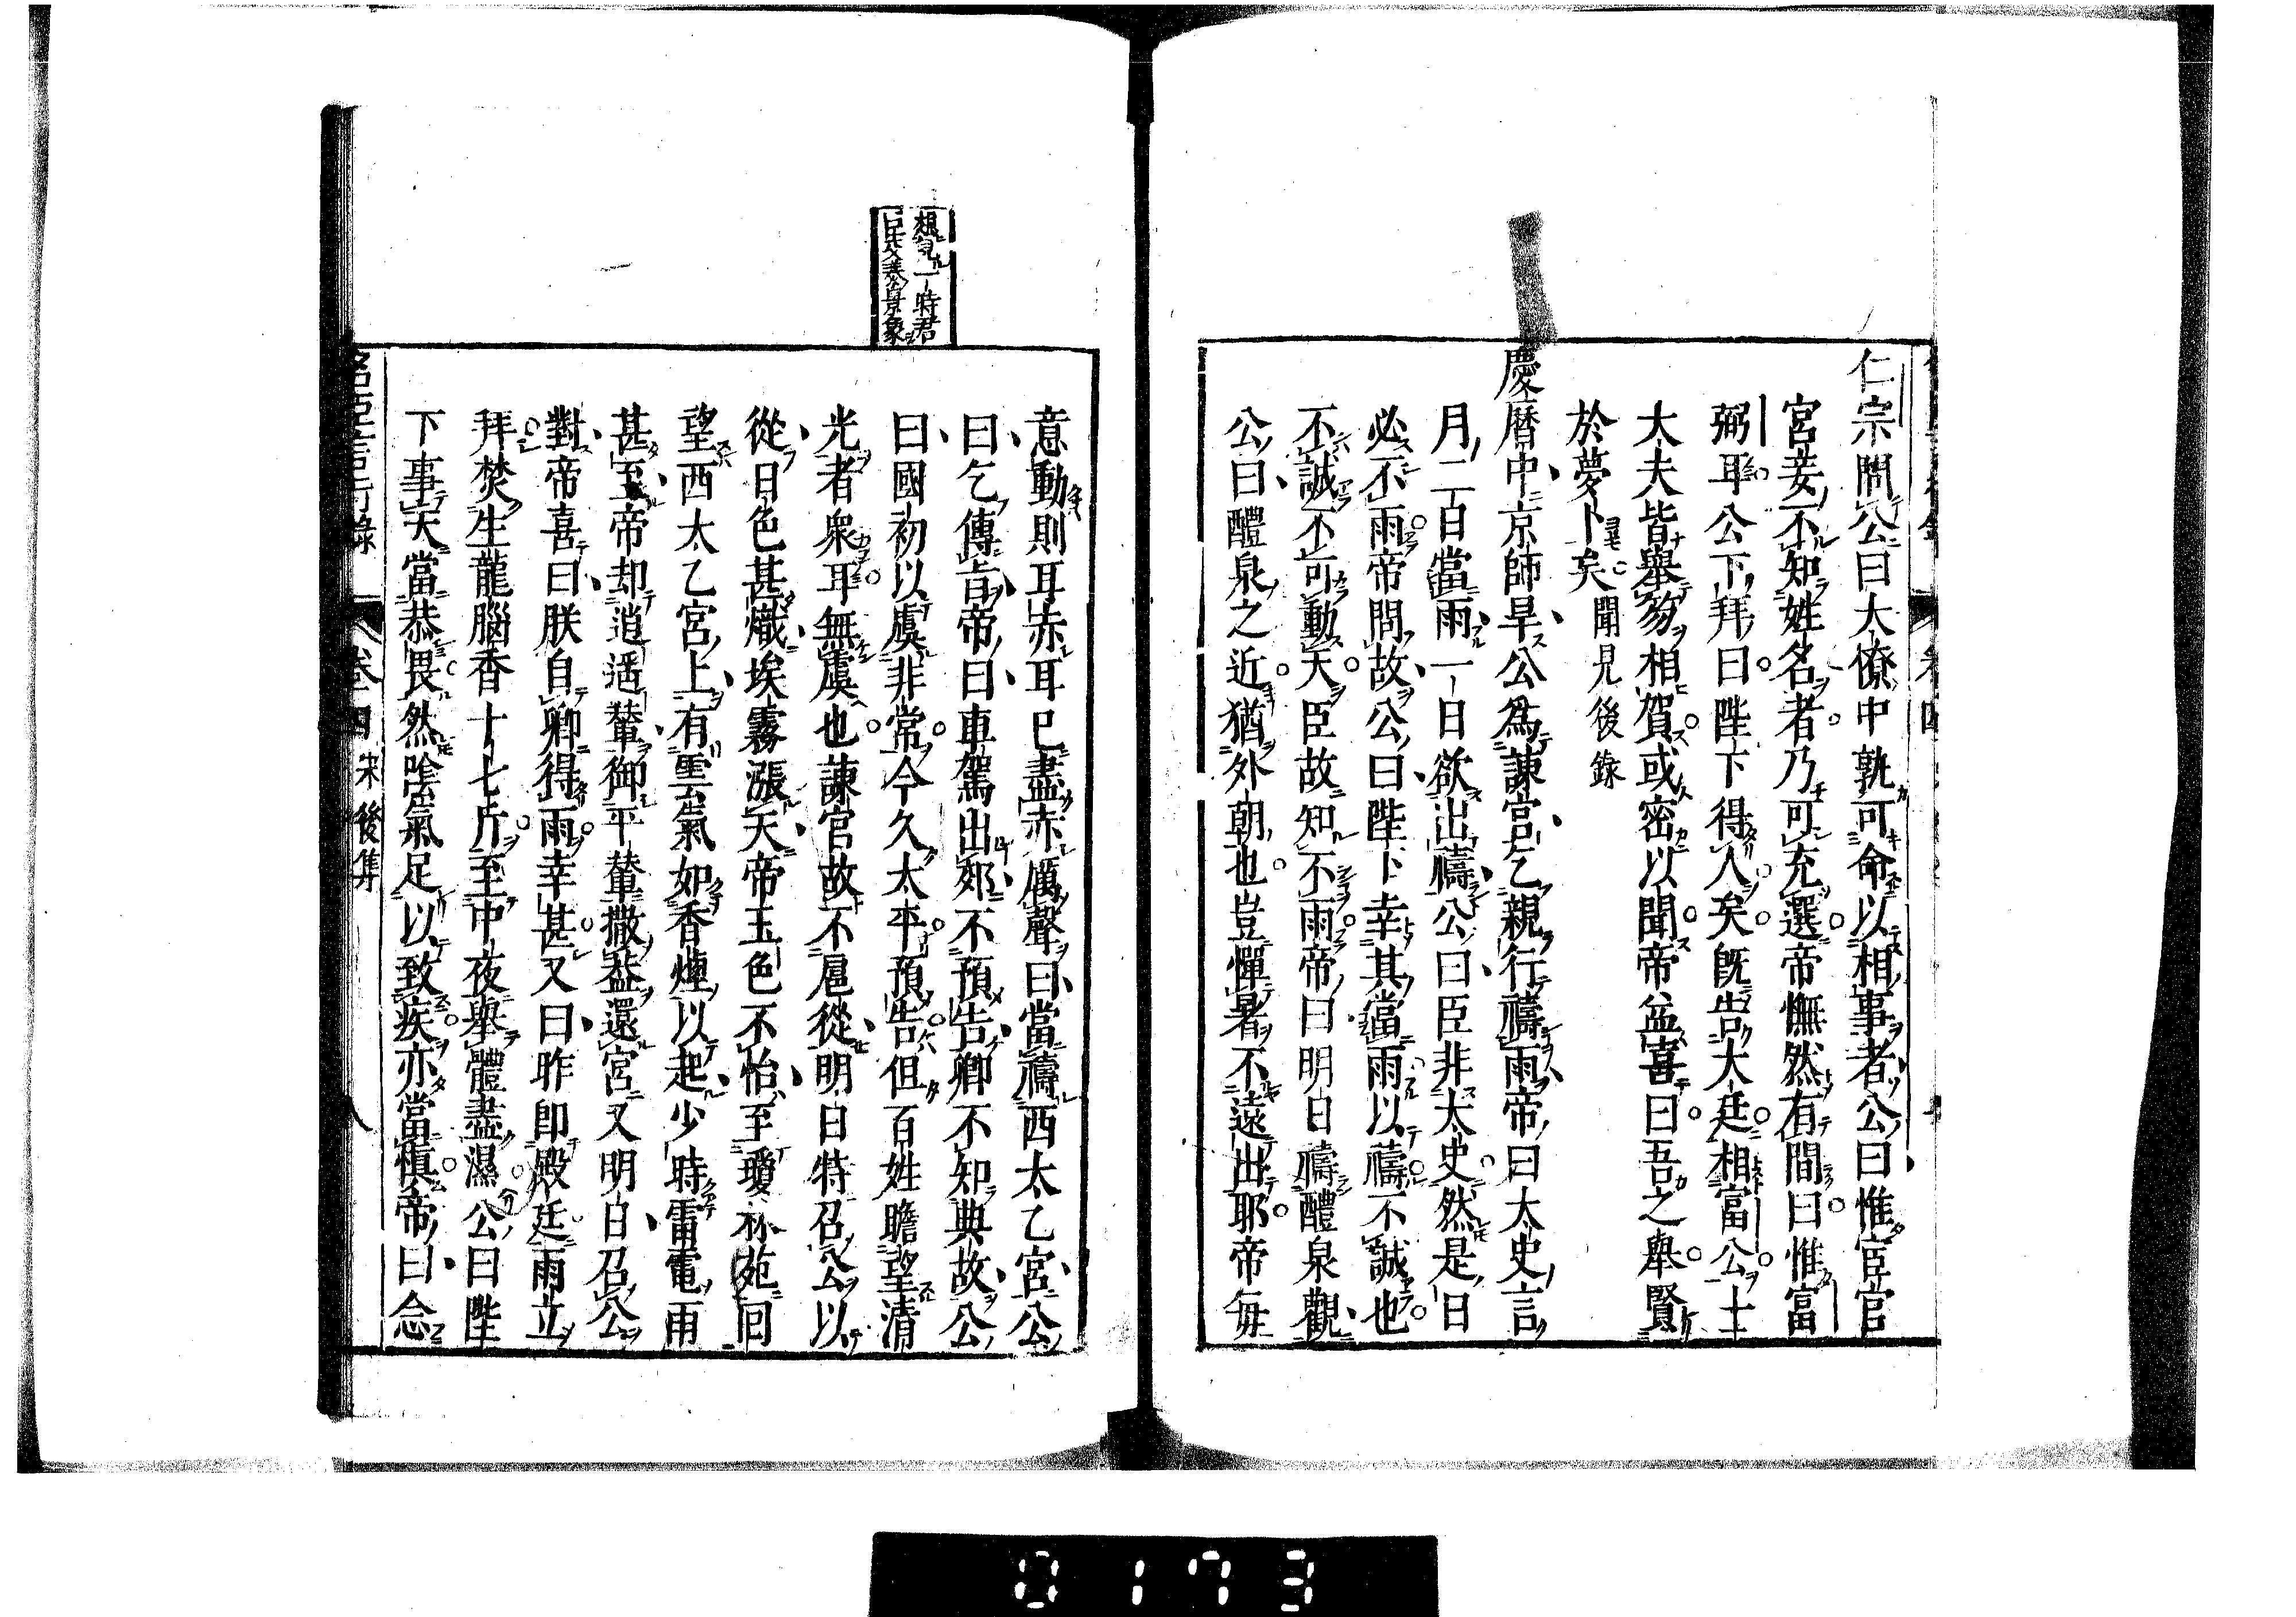 仁宗問公曰大僚中孰可命以相事者公曰惟宦官
宮妾不知姓名者乃可充選帝憮然有間曰惟富
弼耳公下拜曰陛下得人矣既告大廷相富公士
大夫皆舉笏相賀或密以聞帝益喜曰吾之舉賢
於夢卜矣 聞見後錄
慶曆中京師旱公為諫官乞親行禱雨帝曰太史言
月二日當雨一日欲出禱公曰臣非太史然是日
必不雨帝問故公曰陛下幸其當雨以禱不誠也
不誠不可動天臣故知不雨帝曰明日禱醴泉觀
公曰醴泉之近猶外朝也豈憚暑不遠出耶帝每
意動則耳赤耳已盡赤厲聲曰當禱西太乙宮公
曰乞傳旨帝曰車駕出郊不預告卿不知典故公
曰國初以虞非常今久太平預告但百姓瞻望清
光者衆耳無虞也諫官故不扈從明日特召公以
從日色甚熾埃霧漲天帝玉色不怡至瓊林苑回
望西太乙宮上有雲氣如香煙以起少時雷電雨
甚至帝却逍遥輦御平輦撒蓋還宮又明日召公
對帝喜曰朕自卿得雨幸甚又曰昨即殿廷雨立
拜焚生龍腦香十七斤至中夜舉體盡濕公曰陛
下事天當恭畏然陰氣足以致疾亦當慎帝曰念
想見一時君
臣交泰景象
名臣言行錄 卷四 宋後集 八
0173